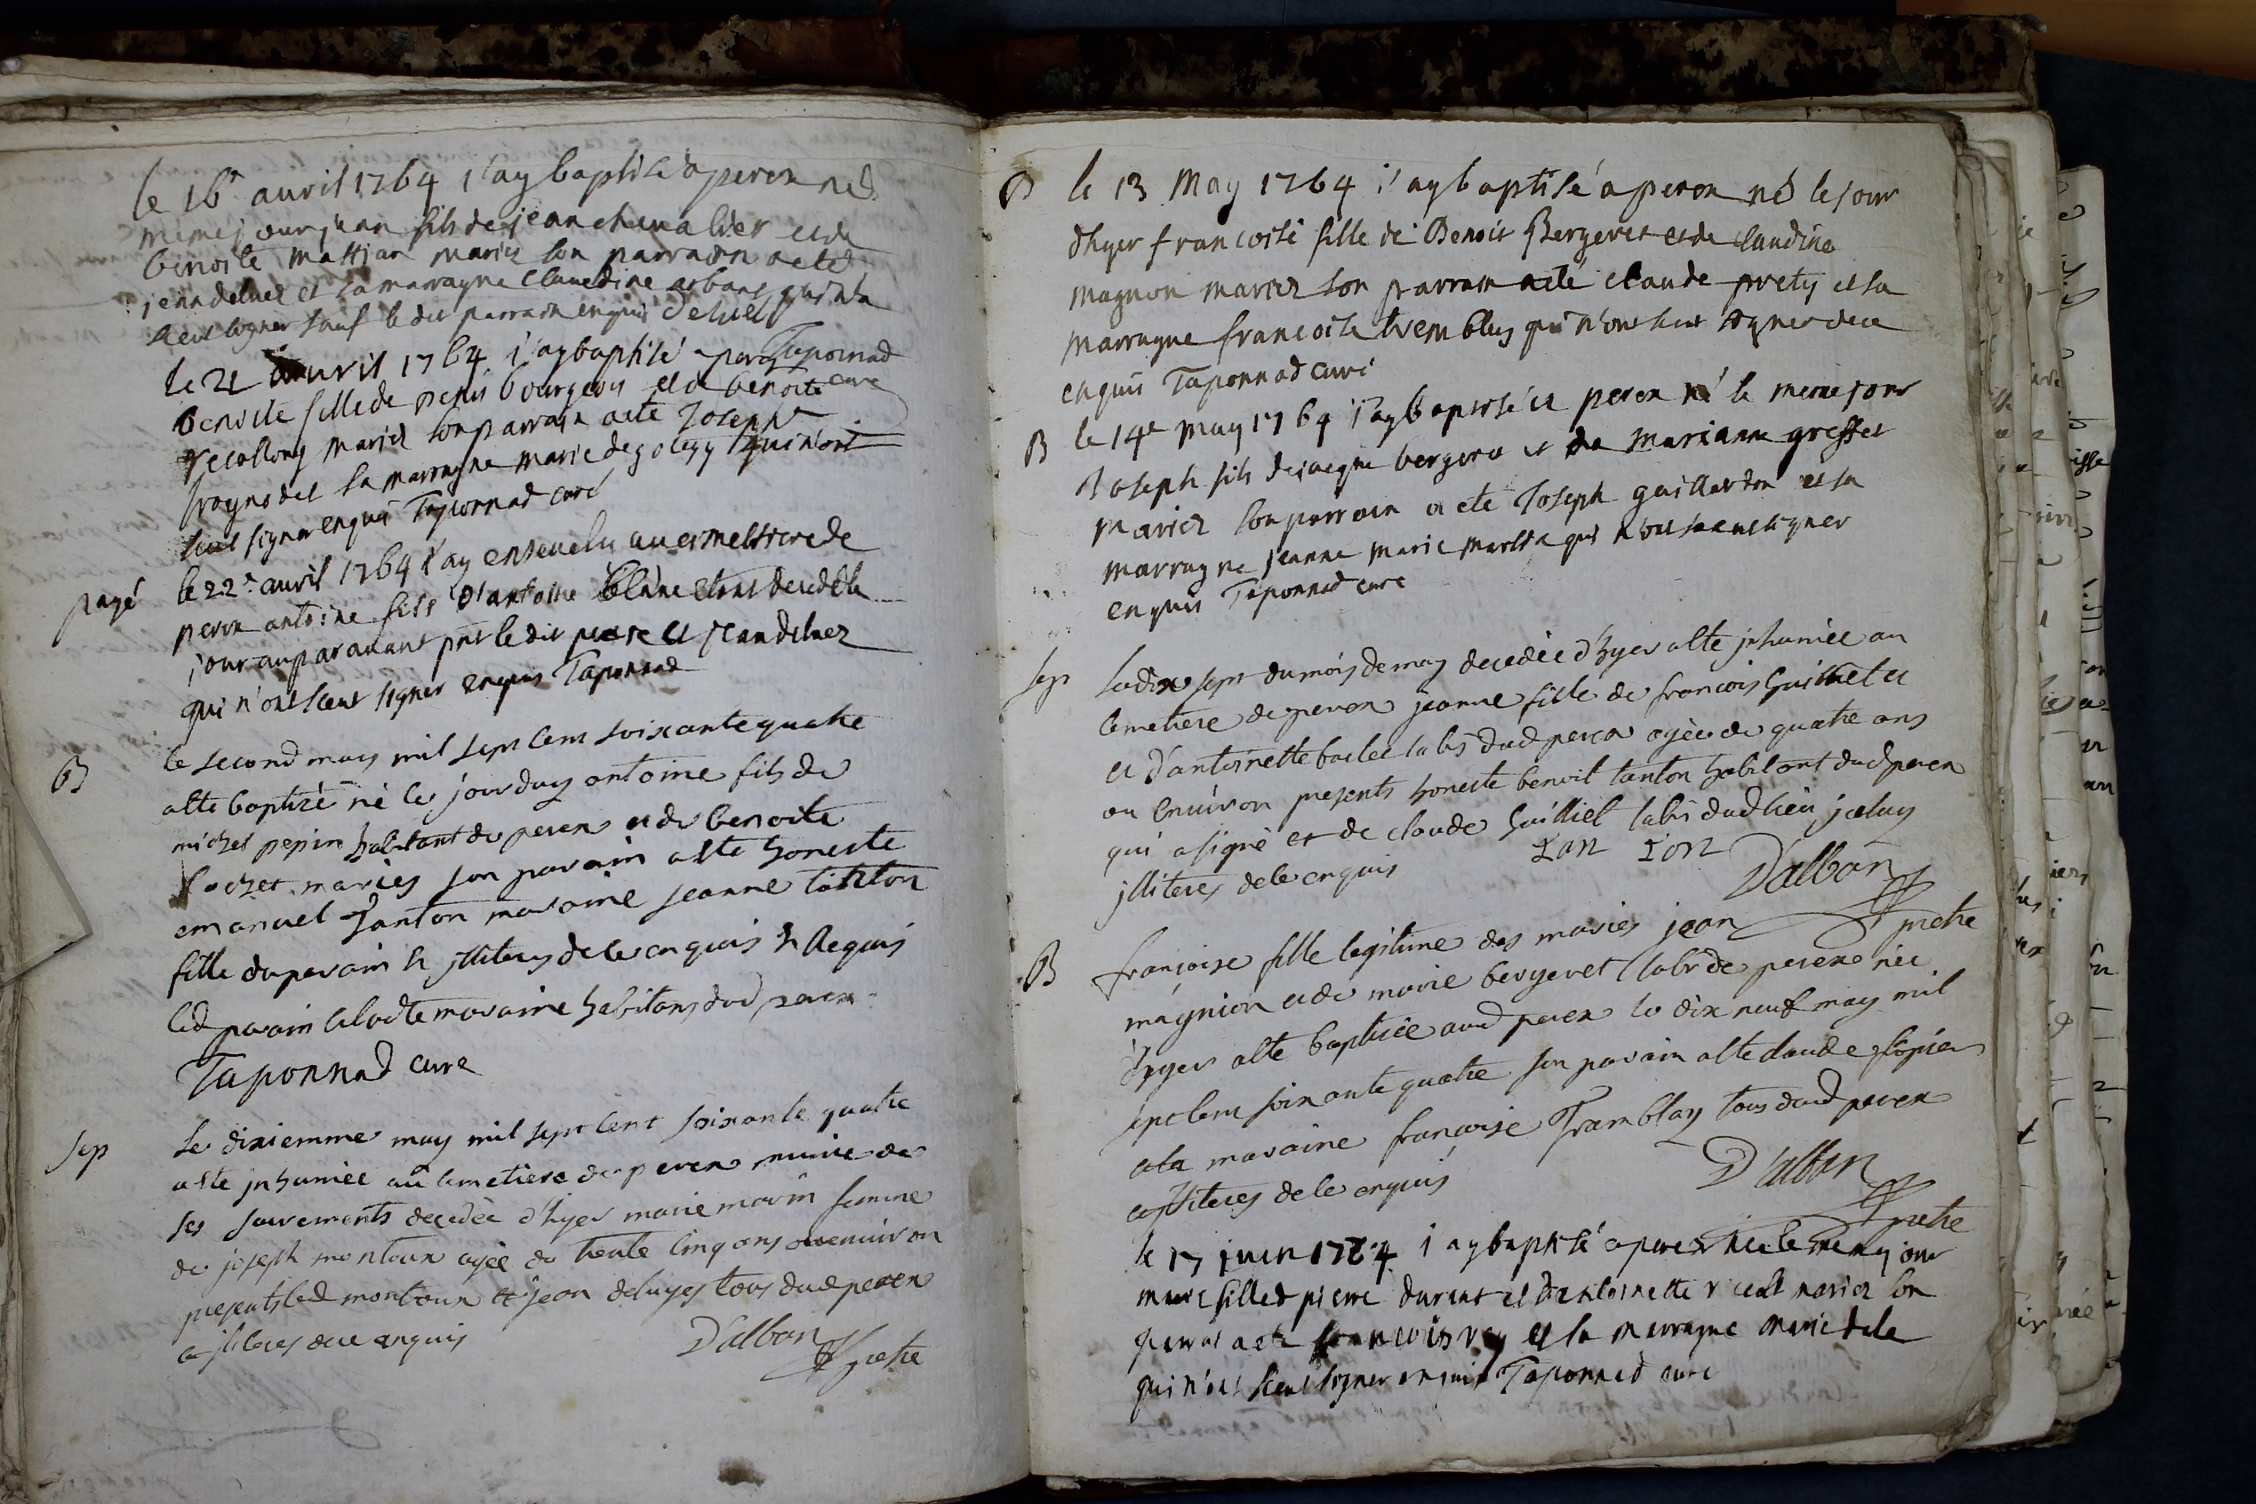 le 16e avril 1764 j'ay baptisé a peron né le
meme jour jean fils de jean chevalier et de
benoite mathian mariez son parrain a eté
jean deluez et sa marrayne claudine qui n'a
sceut signer sauf le dit parrain enquis deluel
le 21 avril 1764 j'ay baptisé a peron Taponnad
benoite fille de denis bourgeois et de benoite curé
recollong mariez son parrain a eté Joseph
sa marrayne marie degoleyy qui n'ont
sceut signer enquis Taponnad curé
payé le 22e avril 1764 j'ay ensevelu au cimeltiere de
peron antoine fils d'antoine blanc etant decedé le
jour auparavant pnt le dit pere et jean deluez
qui n'ont sceut signer enquis Taponnad
B le second may mil sept cent soixante quatre
a eté baptizé né le jourduy antoine fils de
michel pepin habitant de peron et de benoite
rochet mariés son parain a eté honeste
emanuel Tanton maraine jeanne tanton
fille du parain illiteres de ce enquis & Requis
led parain et lad.te maraine habitans dud peron
Taponnad curé
Sep Le dixiemme may mil sept cent soixante quatre
a eté inhumée au cemetiere de peron munie de
ses sacrements decedée d'hyer marie marin femme
de joseph montoux agée de trente cinq ans ou environ
presents led montoux et jean deluyes tous dud peron
illiteres de ce enquis D'alban prêtre
B le 13 may 1764 j'ay baptisé a peron né le jour
d'hyer francoise fille de Benoit Bergeret et de claudine
magnon mariez son parrain a eté claude prety et sa
marrayne francoise tremblay qui n'ont sceut signer de ce
enquis Taponnad curé
B le 14e may 1764 j'ay baptisé a peron né le meme jour
Joseph fils de jacque bergeret et de marianne greffet
mariez son parrain a eté Joseph gaillardon et sa
marrayne jeanne marie qui n'ont sceut signer
enquis Taponnad curé
Sep Le dix sept du mois de may decedée d'hyer a eté inhumée au
cemetiere de peron jeanne fille de françois Guilliet et
et d'antoinette lab.s dud peron agée de quatre ans
ou environ presents honeste benoit tanton habitant dud peron
qui a signé et de claude Guilliet lab.r dud lieu iceluy
illiteres de ce enquis Tan Ton D'alban
prêtre
B françoise fille legitime des mariés jean
magnion et de marie bergeret lab.r de peron née
d'hyer a eté baptisée aud peron le dix neuf may mil
sept cent soixante quatre son parain a eté claude
et la maraine françoise Tramblay tous dud peron
illiteres de ce enquis D'alban
prêtre
le 17 juin 1764 j'ay baptisé a peron née le meme jour
marie fille d pierre durent et d'antoinette mariez son
parrain a eté francois rey et la marrayne marie
qui n'ont sceut signer enquis Taponnad curé